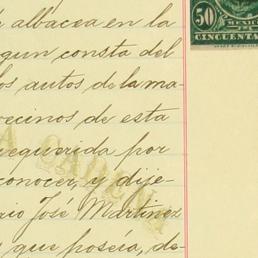 albacea en la
gun consta del
los autos de la ma-
vecinos de esta
requerida por
conocer, y dije-
rio José Martinez
que poseía, de-
50
MEXICO
CINCUENTA